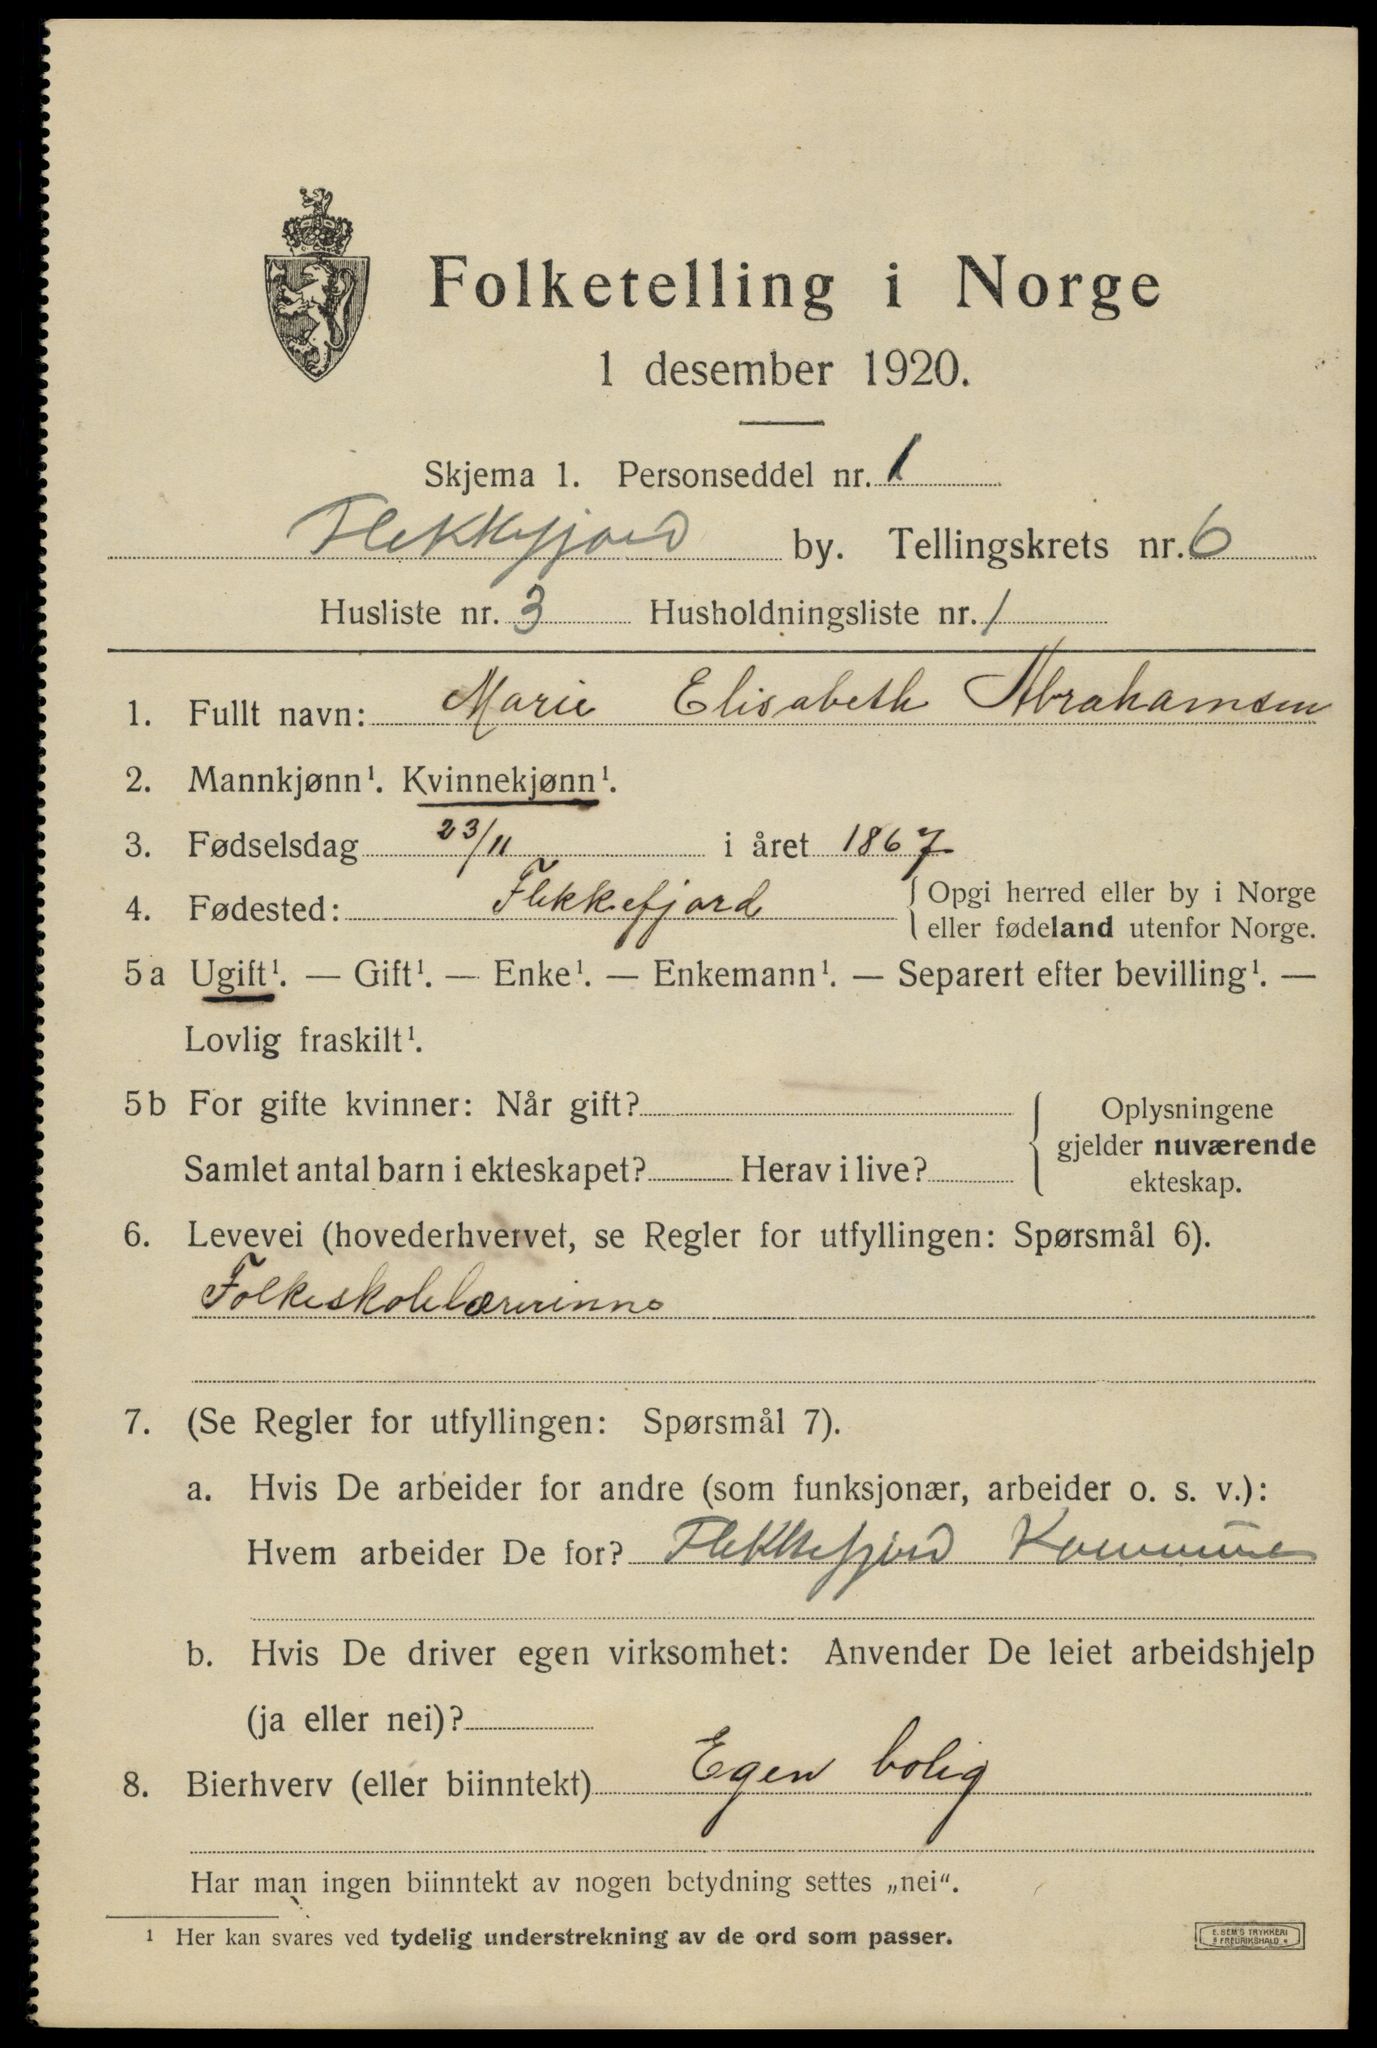 Folketelling i Norge
1 desember 1920.
Skjema 1. Personseddel nr. 1
Flekkefjord by. Tellingskrets nr. 6
Husliste nr. 3 Husholdningsliste nr. 1
1. Fullt navn: Marie Elisabeth Abrahamsen
2. Mannkjønn¹. Kvinnekjønn¹.
3. Fødselsdag 23/11 i året 1867
4. Fødested: Flekkefjord { Opgi herred eller by i Norge
eller fødeland utenfor Norge.
5 a Ugift¹. — Gift¹. — Enke¹. — Enkemann¹. — Separert efter bevilling¹. —
Lovlig fraskilt¹.
5 b For gifte kvinner: Når gift? { Oplysningene
gjelder nuværende
Samlet antal barn i ekteskapet? Herav i live? ekteskap.
6. Levevei (hovederhvervet, se Regler for utfyllingen: Spørsmål 6).
Folkeskolelærerinne
7. (Se Regler for utfyllingen: Spørsmål 7).
a. Hvis De arbeider for andre (som funksjonær, arbeider o. s. v.):
Hvem arbeider De for? Flekkefjord Kommune
b. Hvis De driver egen virksomhet: Anvender De leiet arbeidshjelp
(ja eller nei)?
8. Bierhverv (eller biinntekt) Egen bolig
Har man ingen biinntekt av nogen betydning settes „nei“.
¹ Her kan svares ved tydelig understrekning av de ord som passer.
E. SEM'S TRYKKERI
FREDRIKSHALD